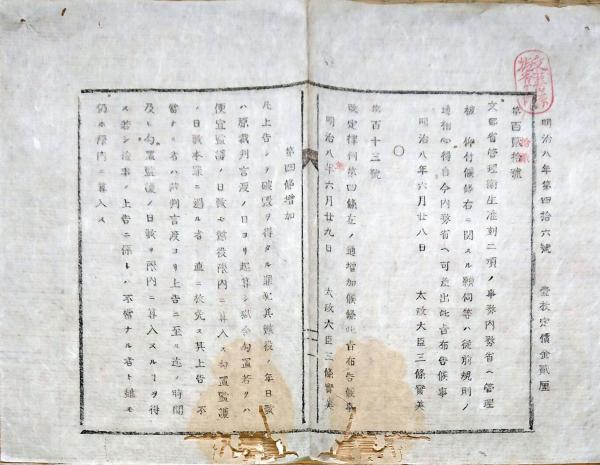 明治八年第四拾六號　壹枚定價金貳厘
第百貳拾號
拾貳
文部省管理衞生准刻二項ノ事務内務省ヘ管理
被　仰付候條右ニ関スル願伺等ハ從前規則ノ
通相心得自今内務省ヘ可差出此旨布告候事
明治八年六月廿八日　太政大臣三條實美
〇
第百十三號
改定律例第四條左ノ通增加候條此旨布告候事
明治八年六月廿九日　太政大臣三條實美
第四條増加
凡上告シテ破毀ヲ得タル罪犯其懲役ノ年日數
ハ原裁判言渡ノ日ヨリ起算シ獄舎勾置若クハ
便宜監護ノ日數モ懲役限内ニ算入ス勾置監護
ノ日數本罪ニ過ル者　直ニ放免ス其上告　不
當ナル者ハ裁判言渡ヨリ上告ニ至ル迄ノ時間
及ヒ勾置監護ノ日數ヲ限内ニ算入スルヿヲ得
ス若シ檢事ノ上告ニ係レハ不當ナル者ト雖モ
仍ホ限内ニ算入ス